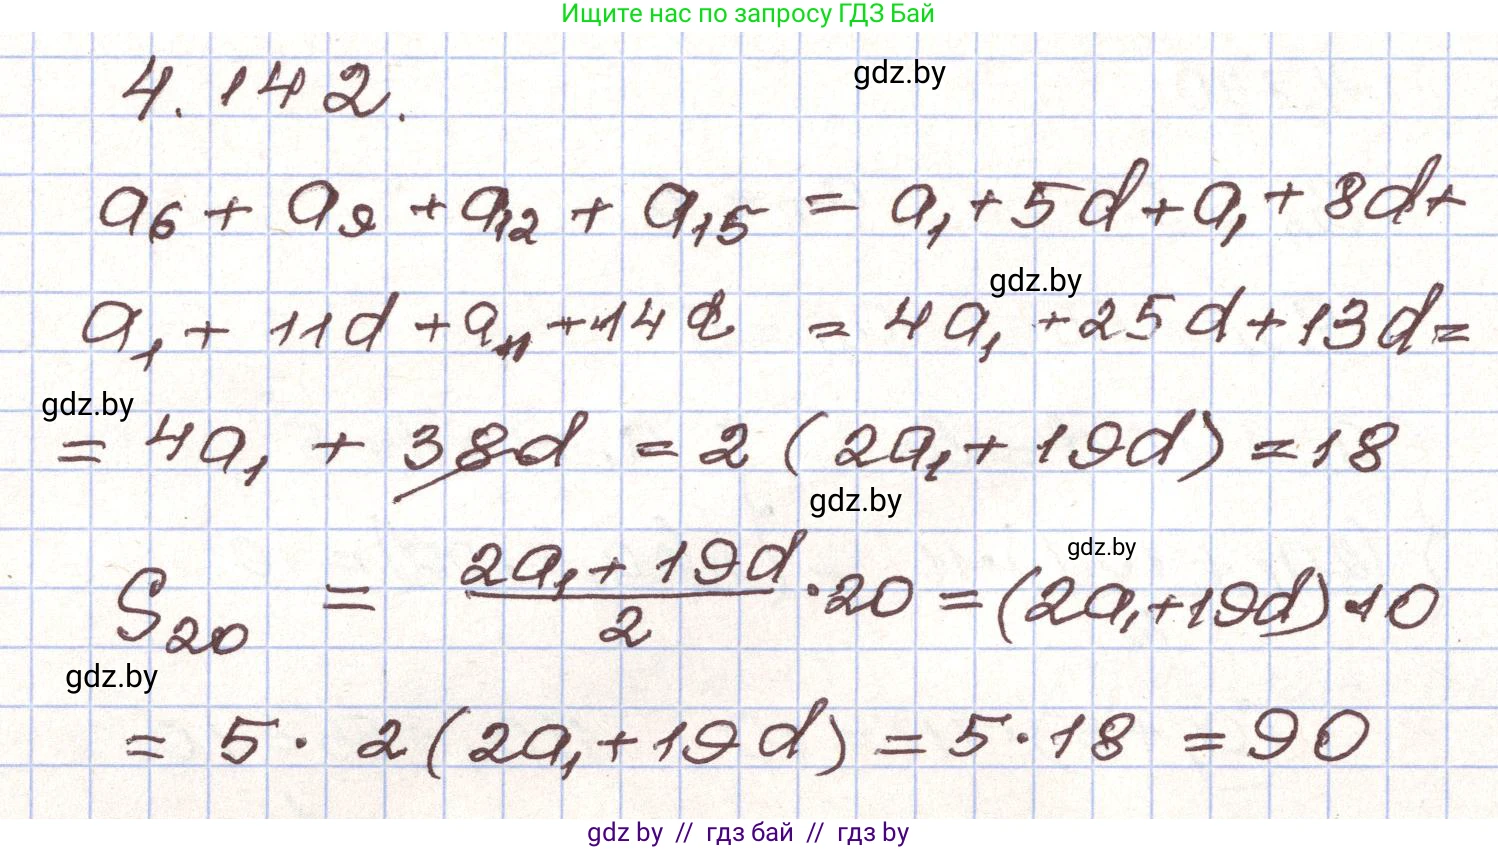 Ищите нас по запросу ГДЗ Бай
4.142.
gdz.by
a₆ + a₉ + a₁₂ + a₁₅ = a₁ + 5d + a₁ + 8d +
gdz.by
a₁ + 11d + a₁ + 14d = 4a₁ + 25d + 13d =
gdz.by
= 4a₁ + 38d = 2 (2a₁ + 19d) = 18
gdz.by
gdz.by
S₂₀ = (2a₁ + 19d)/2 · 20 = (2a₁ + 19d) · 10
gdz.by
= 5 · 2 (2a₁ + 19d) = 5 · 18 = 90
gdz by // гдз бай // гдз by